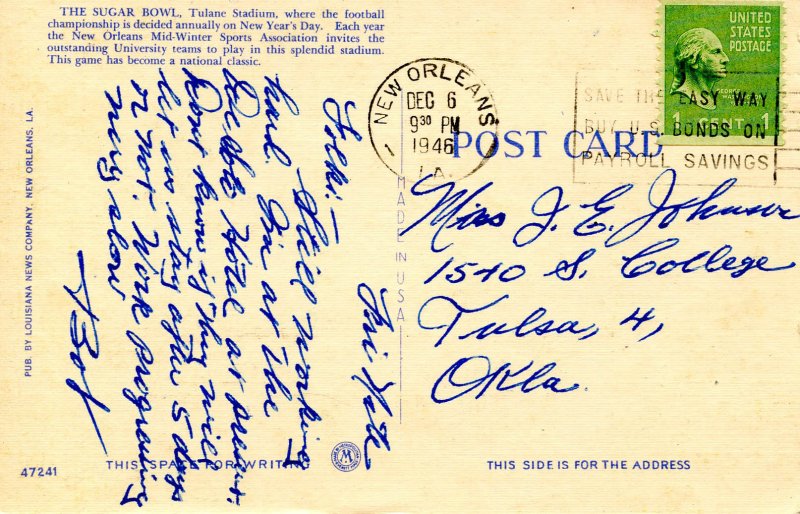 THE SUGAR BOWL, Tulane Stadium, where the football
championship is decided annually on New Year's Day. Each year
the New Orleans Mid-Winter Sports Association invites the
outstanding University teams to play in this splendid stadium.
This game has become a national classic.
UNITED
STATES
POSTAGE
1 CENT 1
NEW ORLEANS
DEC 6
9 30 PM
1946
LA.
SAVE THE EASY WAY
BUY U.S. BONDS ON
PAYROLL SAVINGS
POST CARD
MADE IN USA
PUB. BY LOUISIANA NEWS COMPANY, NEW ORLEANS, LA.
Fri Nite
Folks:-
Still working
hard. I'm at the
Hotel at present.
Don't know if they will
let us stay after 5 days
or not. Work progressing
very slow
Bob
Miss J. E. Johnson
1540 S. College
Tulsa, 4,
Okla.
47241
THIS SPACE FOR WRITING
THIS SIDE IS FOR THE ADDRESS